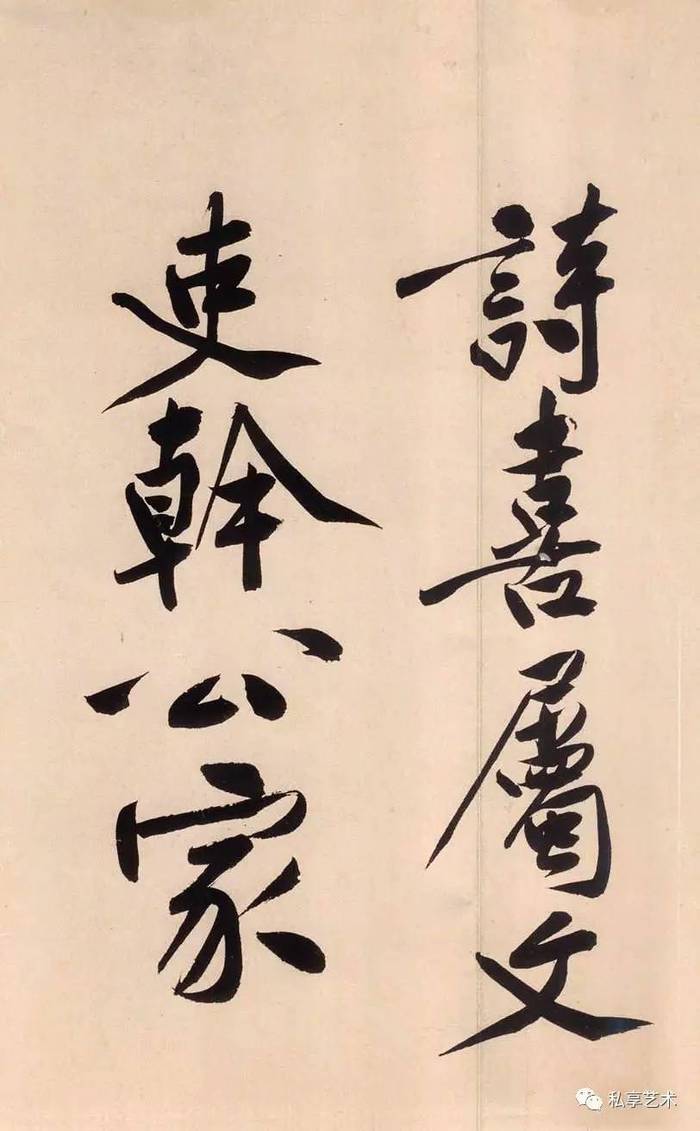 詩書屬文
吏幹公家
私享艺术